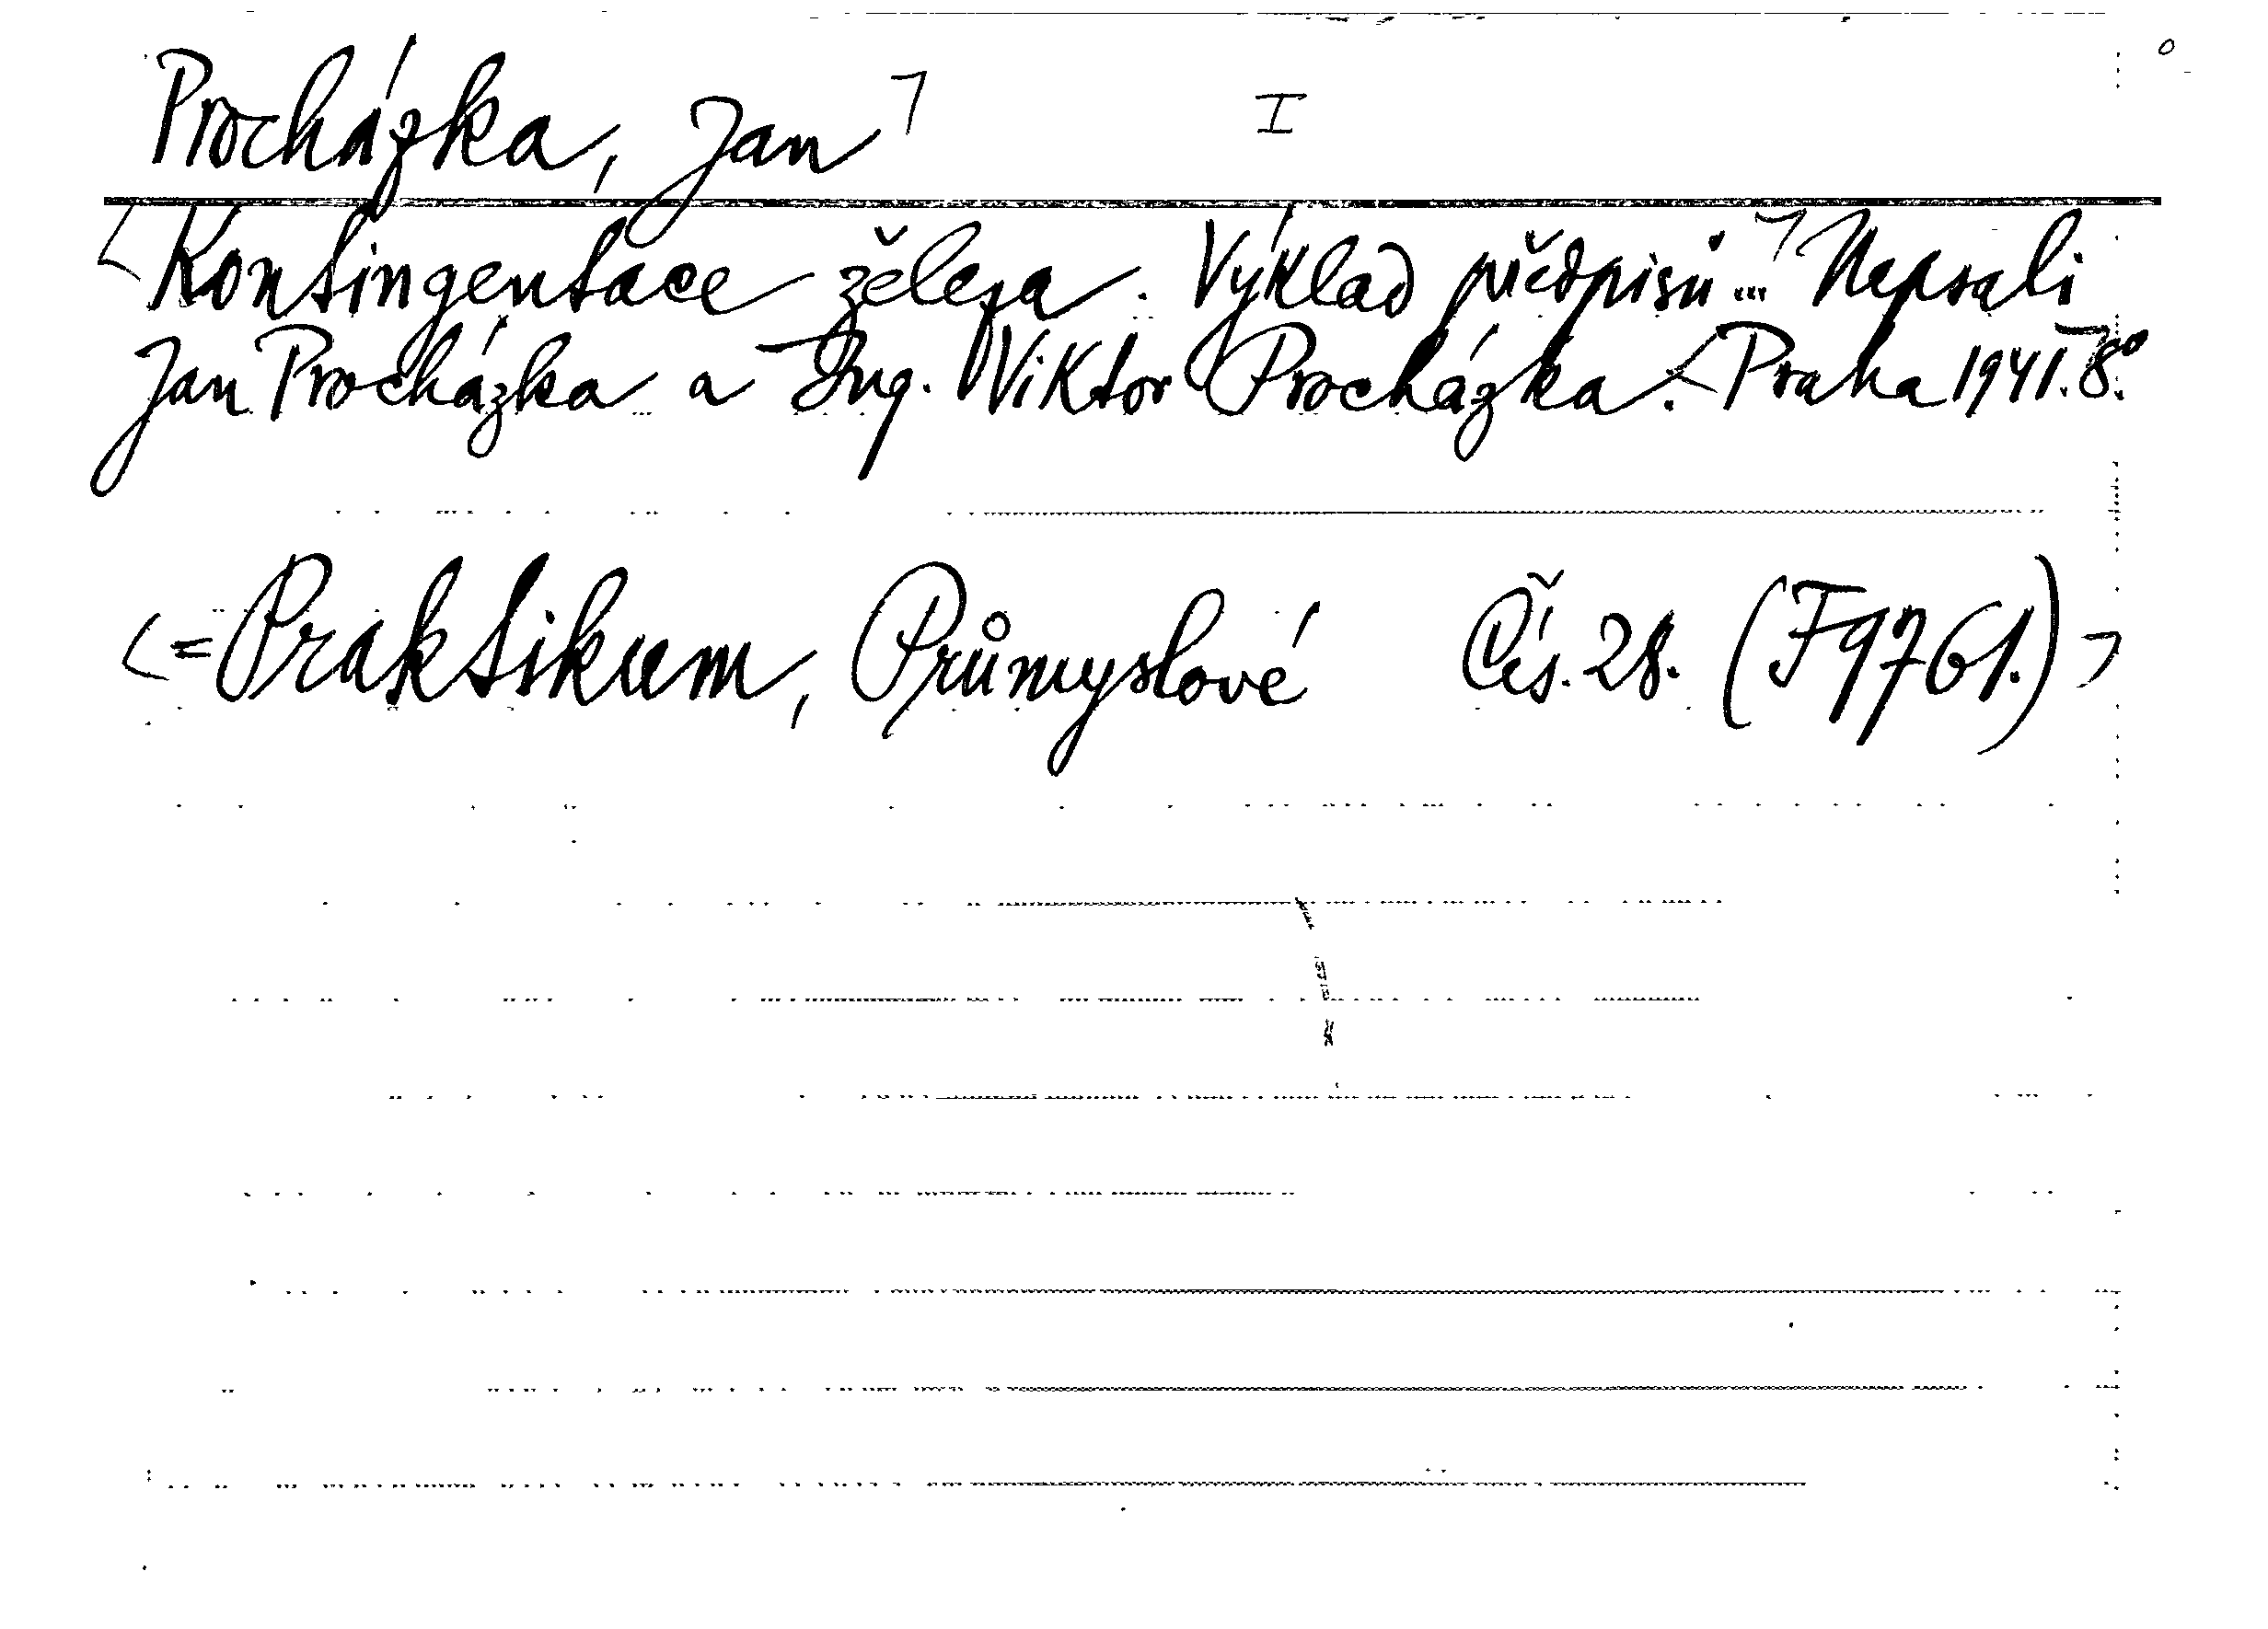 Procházka, Jan I
Kontingentace železa. Výklad předpisů... Napsali
Jan Procházka a Ing. Viktor Procházka. Praha 1941. 8°.
= Praktikum, Průmyslové Čís. 28. (F9761.)